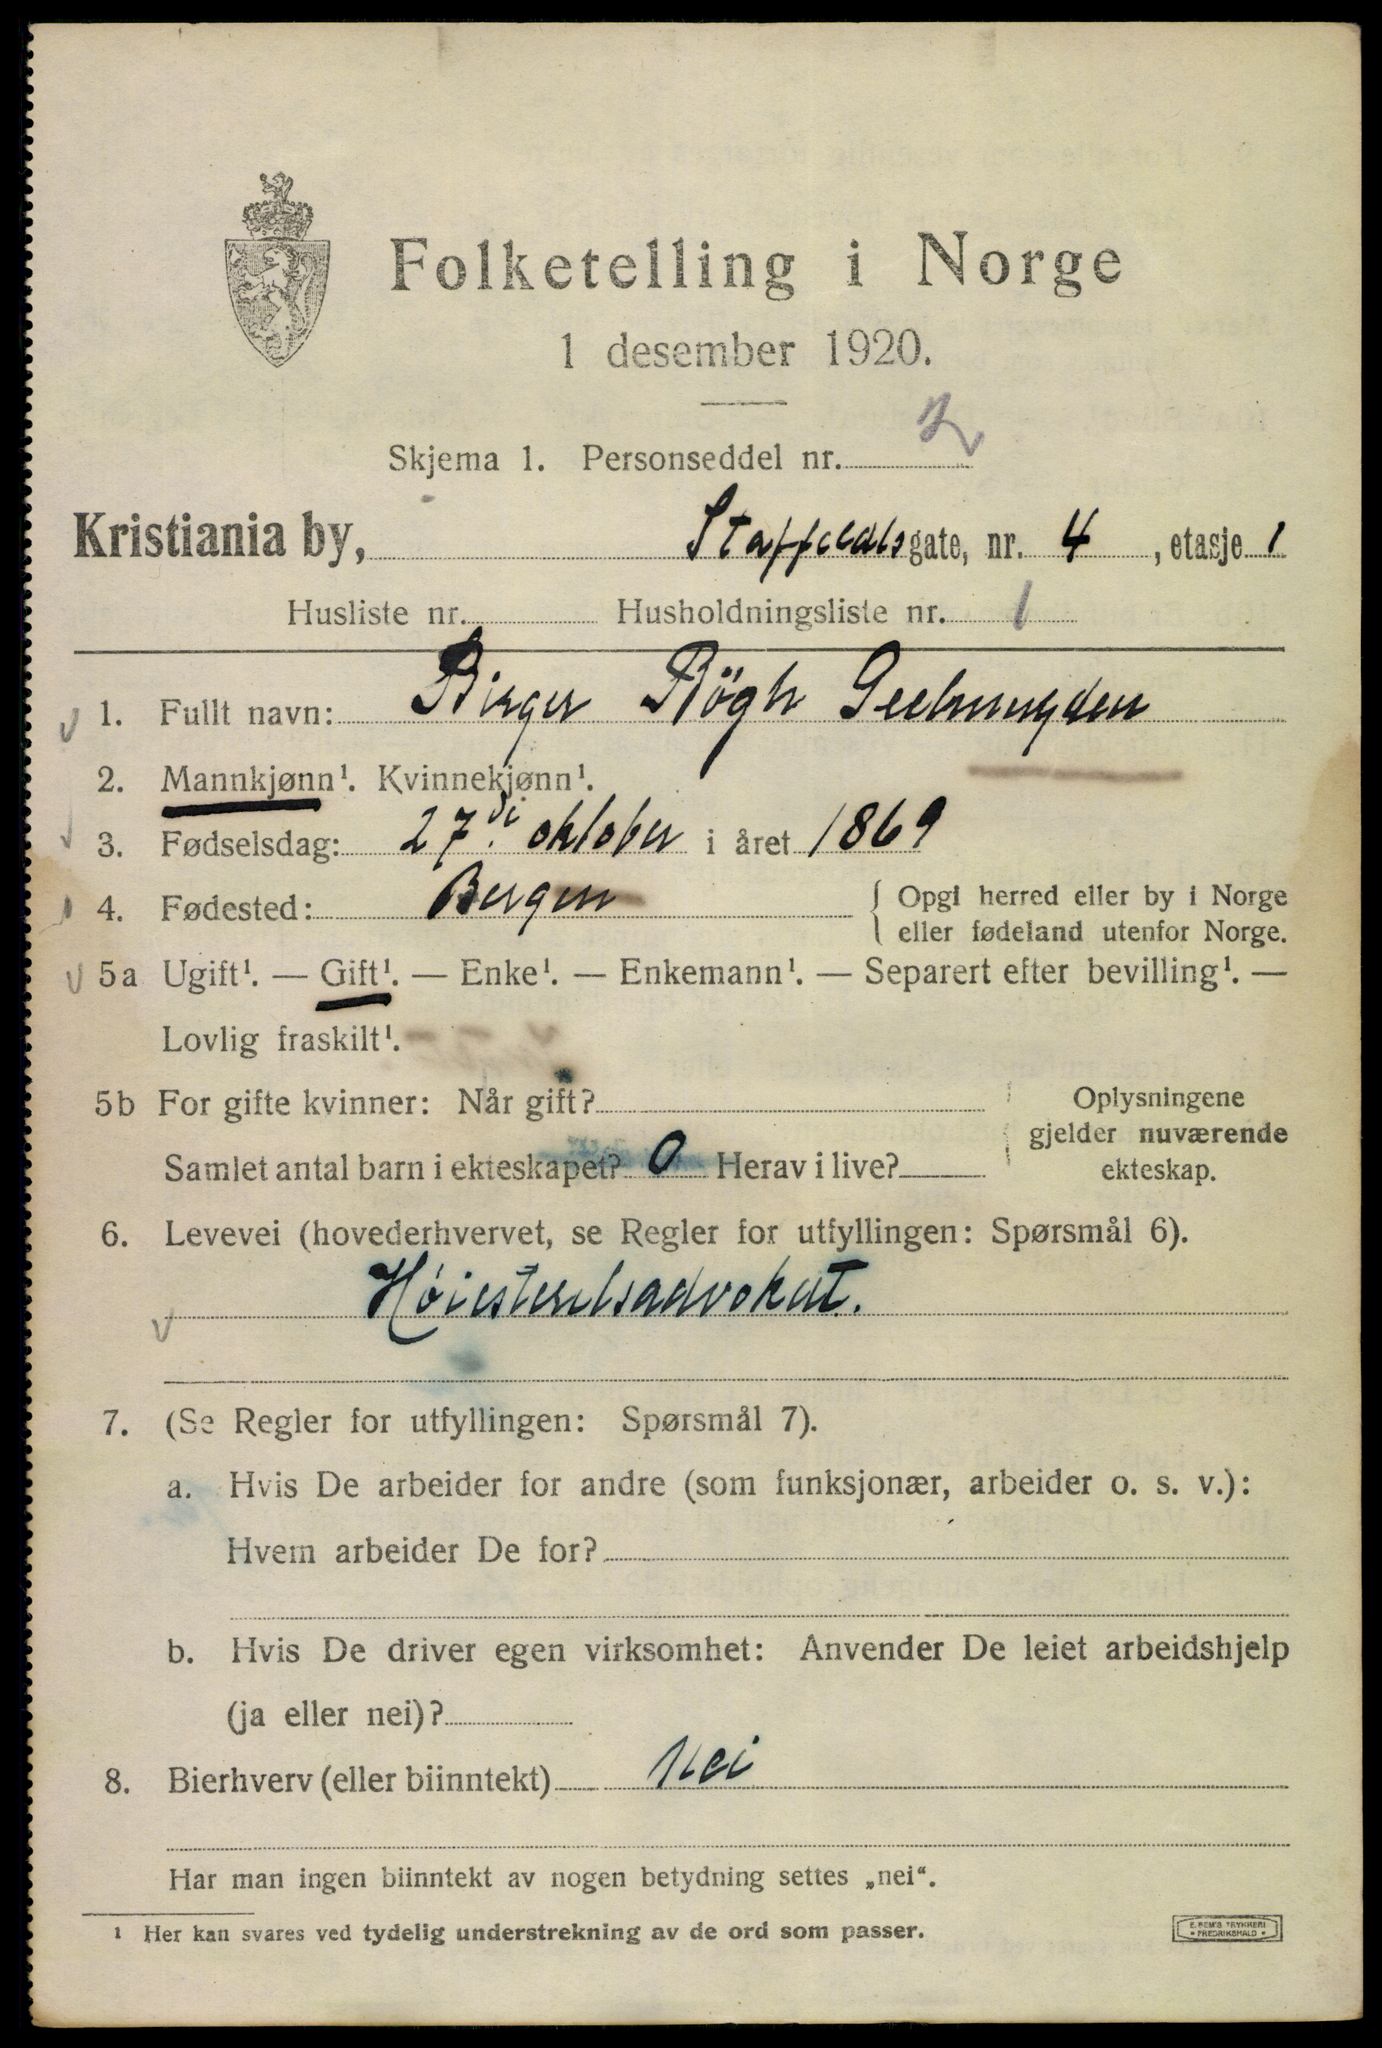 Folketelling i Norge
1 desember 1920.
Skjema 1. Personseddel nr. 2
Kristiania by, Staffeldtsgate, nr. 4, etasje 1
Husliste nr. Husholdningsliste nr. 1
1. Fullt navn: Birger Bögh Geelmuyden
2. Mannkjønn¹. Kvinnekjønn¹.
3. Fødselsdag: 27di oktober i året 1869
4. Fødested: Bergen { Opgi herred eller by i Norge
eller fødeland utenfor Norge.
5a Ugift¹. — Gift¹. — Enke¹. — Enkemann¹. — Separert efter bevilling¹. —
Lovlig fraskilt¹.
5b For gifte kvinner: Når gift?
Samlet antal barn i ekteskapet? 0 Herav i live?
Oplysningene
gjelder nuværende
ekteskap.
6. Levevei (hovederhvervet, se Regler for utfyllingen: Spørsmål 6).
Høiesteretsadvokat.
7. (Se Regler for utfyllingen: Spørsmål 7).
a. Hvis De arbeider for andre (som funksjonær, arbeider o. s. v.):
Hvem arbeider De for?
b. Hvis De driver egen virksomhet: Anvender De leiet arbeidshjelp
(ja eller nei)?
8. Bierhverv (eller biinntekt) Nei
Har man ingen biinntekt av nogen betydning settes „nei“.
¹ Her kan svares ved tydelig understrekning av de ord som passer.
E. SEM'S TRYKKERI
• FREDRIKSHALD •